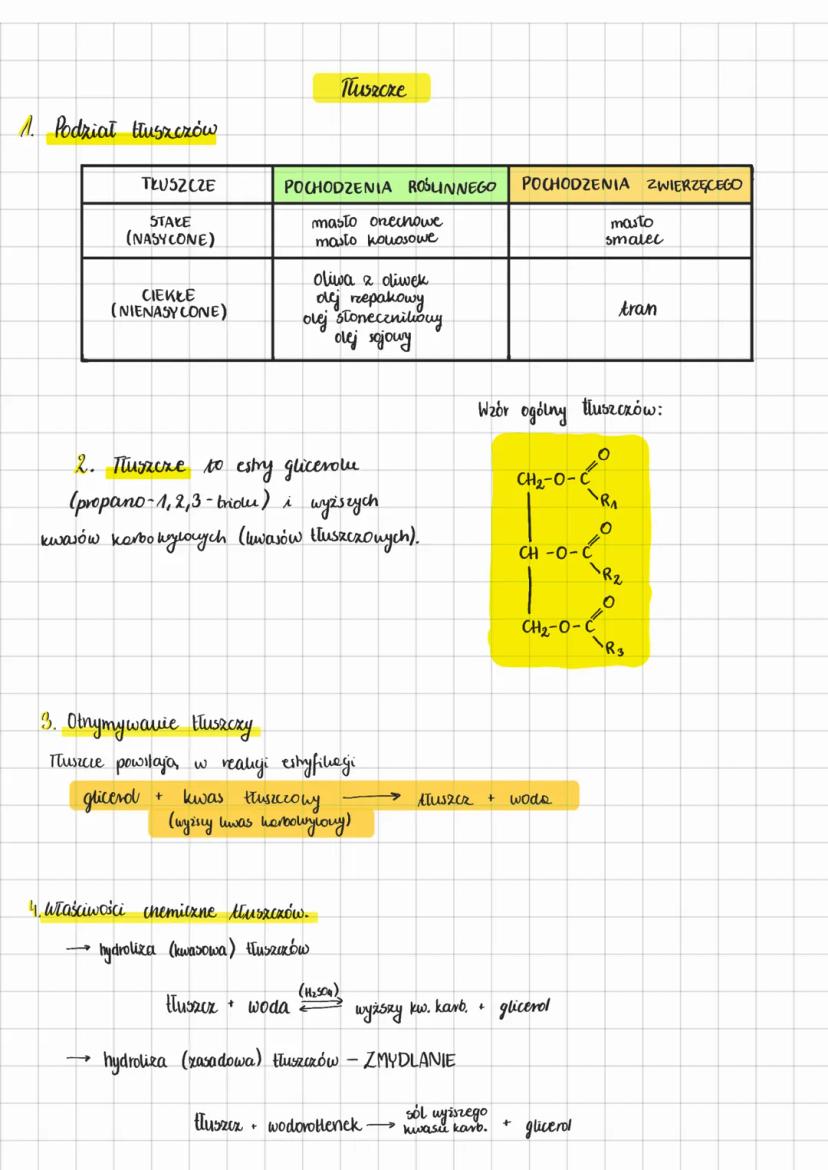 Tłuszcze
1. Podział tłuszczów
TŁUSZCZE POCHODZENIA ROŚLINNEGO POCHODZENIA ZWIERZĘCEGO
STAŁE (NASYCONE) masło orzechowe masło kokosowe masło smalec
CIEKŁE (NIENASYCONE) oliwa z oliwek olej rzepakowy olej słonecznikowy olej sojowy tran
Wzór ogólny tłuszczów:
CH2-O-C O R1
CH-O-C O R2
CH2-O-C O R3
2. Tłuszcze to estry glicerolu
(propano-1,2,3-triolu) i wyższych
kwasów karboksylowych (kwasów tłuszczowych).
3. Otrzymywanie tłuszczy
Tłuszcze powstają w reakcji estryfikacji
glicerol + kwas tłuszczowy → tłuszcz + woda
(wyższy kwas karboksylowy)
4. Właściwości chemiczne tłuszczów.
→ hydroliza (kwasowa) tłuszczów
tłuszcz + woda (H2SO4) ⇌ wyższy kw. karb. + glicerol
→ hydroliza (zasadowa) tłuszczów - ZMYDLANIE
tłuszcz + wodorotlenek → sól wyższego kwasu karb. + glicerol